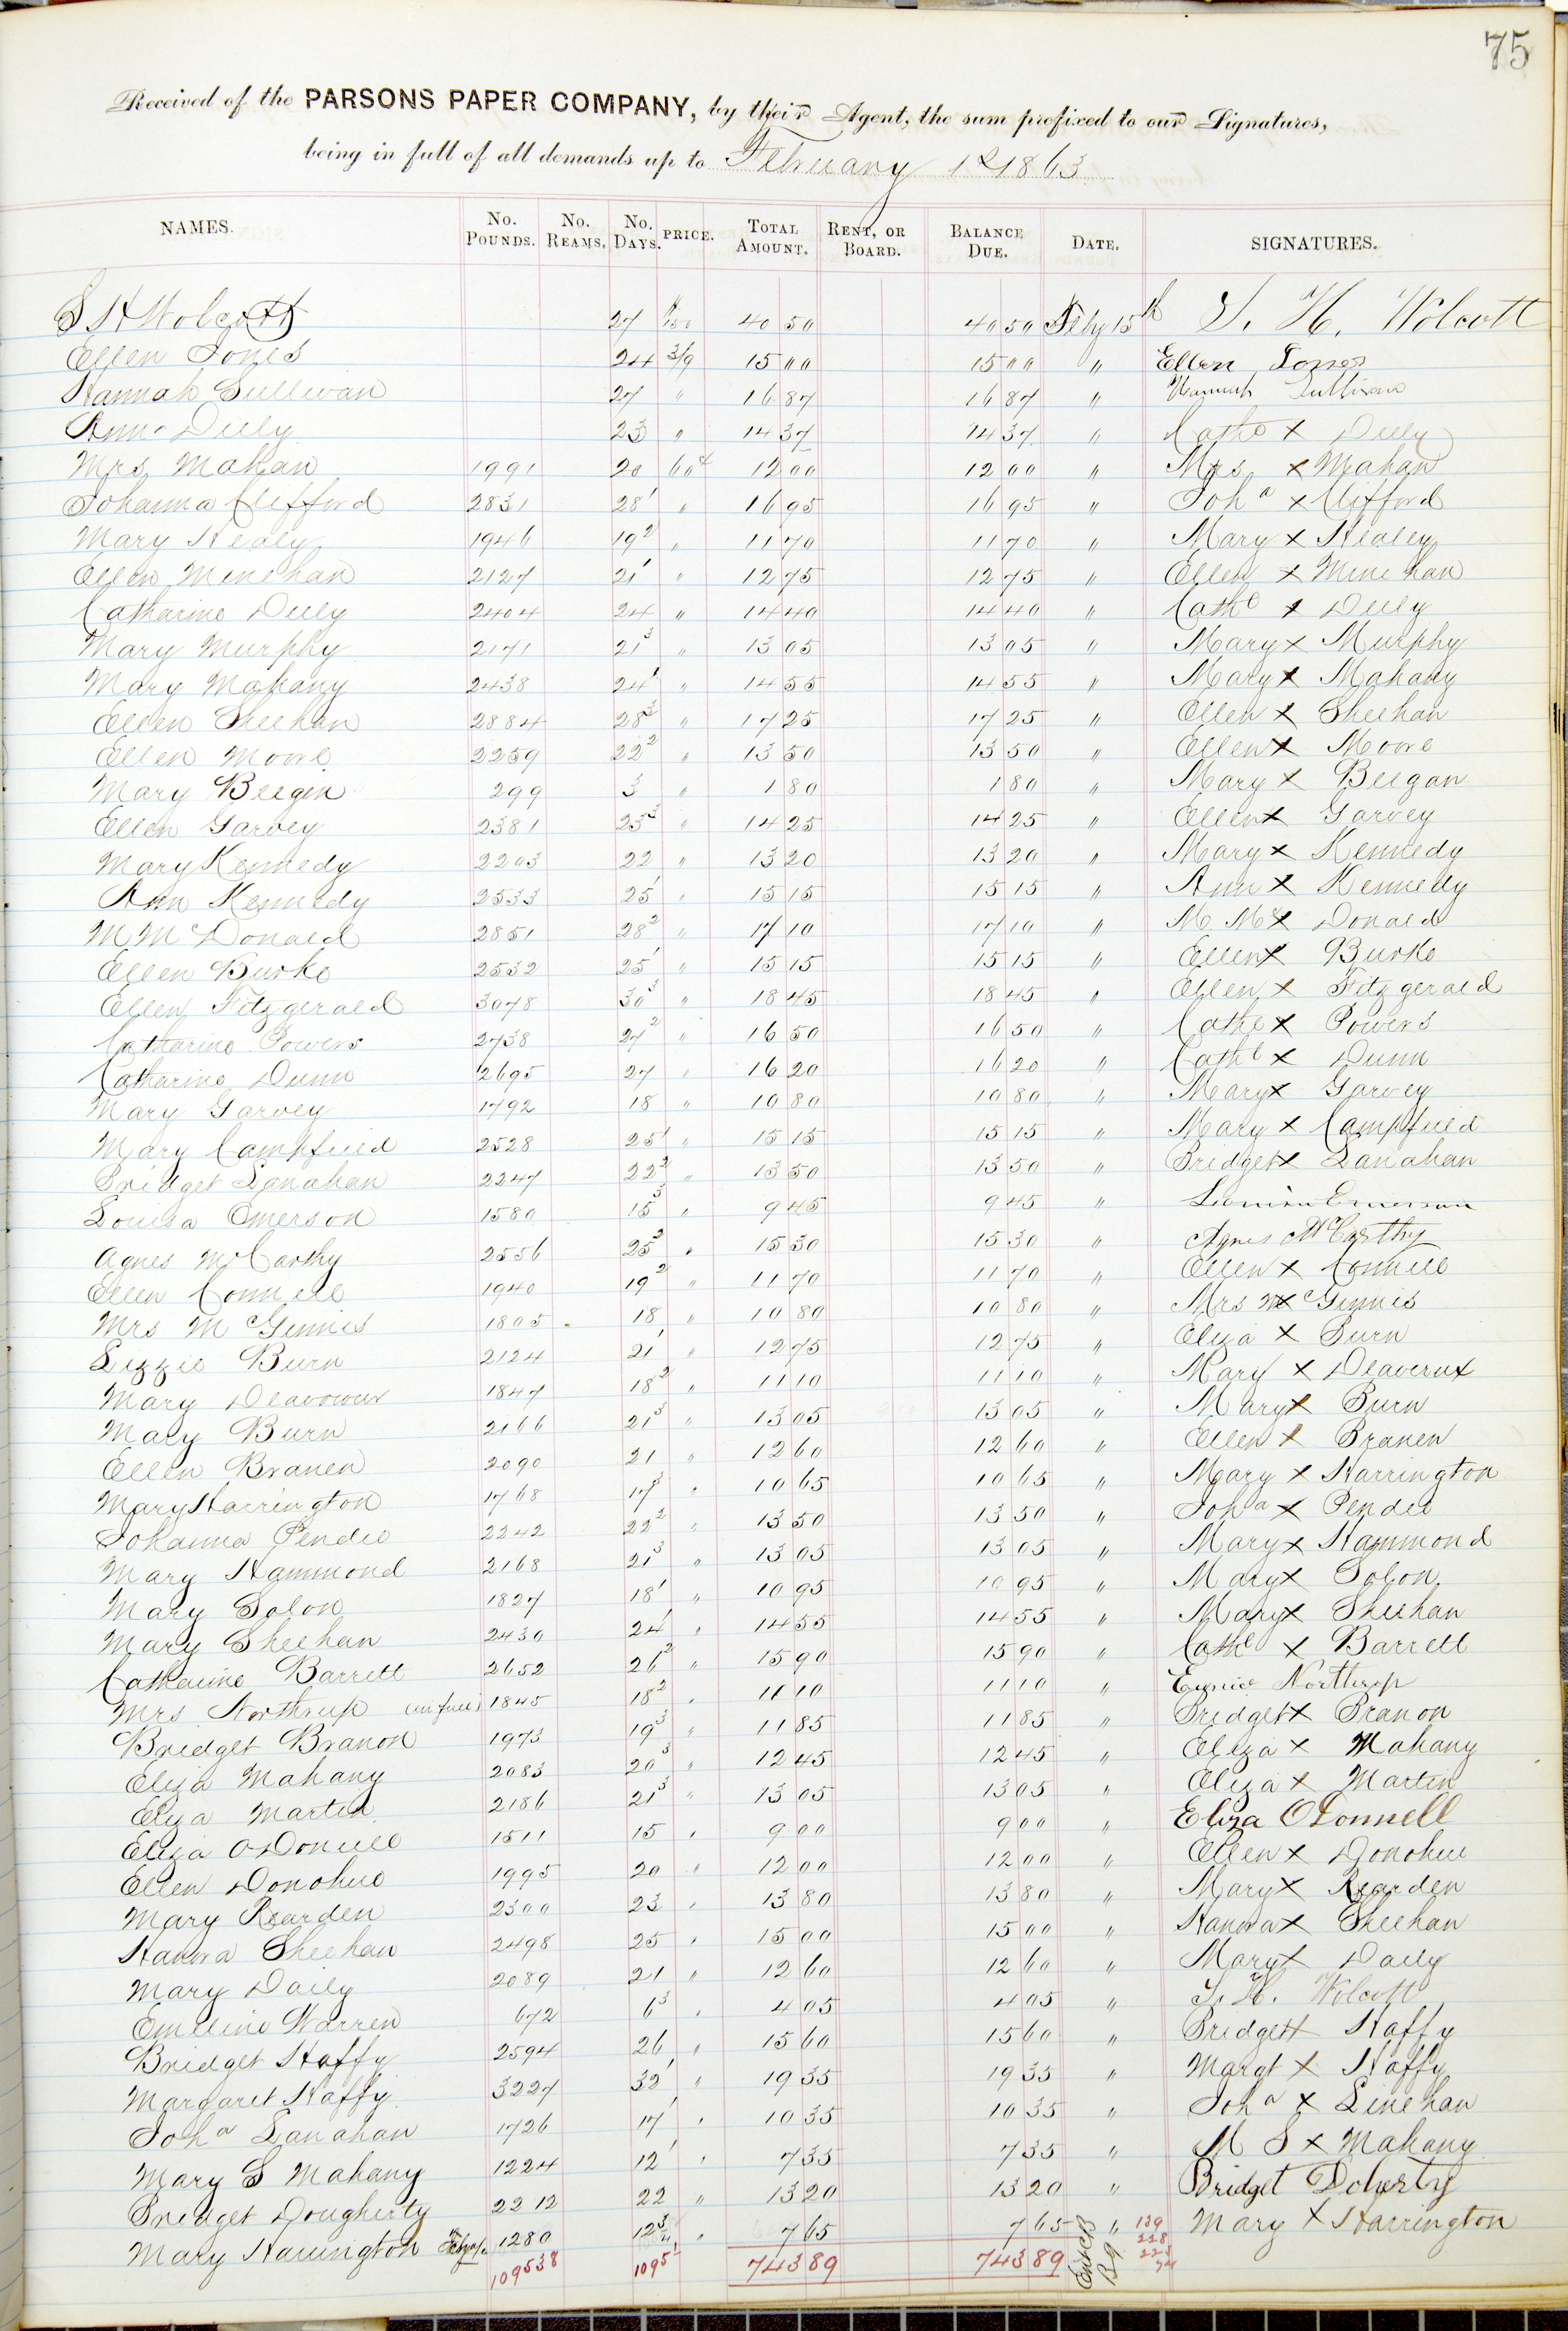 75
Received of the PARSONS PAPER COMPANY, by their Agent, the sum prefixed to our Signatures,
being in full of all demands up to February 1st 1863
NAMES. No. POUNDS. No. REAMS. No. DAYS. PRICE. TOTAL AMOUNT. RENT, OR BOARD. BALANCE DUE. DATE. SIGNATURES.
S H Wolcott 27 1.50 40 50 40 50 Feby 15th S. H. Wolcott
Ellen Jones 24 3/9 15 00 15 00 " Ellen Jones
Hannah Sullivan 27 " 16 87 16 87 " Hannah Sullivan
Ann Deely 23 " 14 37 14 37 " Cathe x Deely
Mrs Mahan 1991 20 60¢ 12 00 12 00 " Mrs x Mahan
Johanna Clifford 2831 28¹ " 16 95 16 95 " Joha x Clifford
Mary Healey 1946 19² " 11 70 11 70 " Mary x Healey
Ellen Minehan 2127 21¹ " 12 75 12 75 " Ellen x Minehan
Catharine Deely 2404 24 " 14 40 14 40 " Cathe x Deely
Mary Murphy 2171 21³ " 13 05 13 05 " Mary x Murphy
Mary Mahany 2438 24¹ " 14 55 14 55 " Mary x Mahany
Ellen Sheehan 2884 28³ " 17 25 17 25 " Ellen x Sheehan
Ellen Moore 2259 22² " 13 50 13 50 " Ellen x Moore
Mary Beegin 299 3 " 1 80 1 80 " Mary x Beegan
Ellen Garvey 2381 23³ " 14 25 14 25 " Ellen x Garvey
Mary Kennedy 2203 22 " 13 20 13 20 " Mary x Kennedy
Ann Kennedy 2533 25¹ " 15 15 15 15 " Ann x Kennedy
M McDonald 2851 28² " 17 10 17 10 " M Mc x Donald
Ellen Burke 2532 25¹ " 15 15 15 15 " Ellen x Burke
Ellen Fitzgerald 3078 30³ " 18 45 18 45 " Ellen x Fitzgerald
Catharine Powers 2738 27² " 16 50 16 50 " Cathe x Powers
Catharine Dunn 2695 27 " 16 20 16 20 " Cathe x Dunn
Mary Garvey 1792 18 " 10 80 10 80 " Mary x Garvey
Mary Campfield 2528 25¹ " 15 15 15 15 " Mary x Campfield
Bridget Lanahan 2247 22² " 13 50 13 50 " Bridget x Lanahan
Louisa Emerson 1580 15³ " 9 45 9 45 " Louisa Emerson
Agnes McCarthy 2556 25² " 15 30 15 30 " Agnes McCarthy
Ellen Connell 1940 19² " 11 70 11 70 " Ellen x Connell
Mrs McGinnis 1805 18 " 10 80 10 80 " Mrs M x Ginnis
Lizzie Burn 2124 21¹ " 12 75 12 75 " Eliza x Burn
Mary Deavour 1847 18² " 11 10 11 10 " Mary x Deaverux
Mary Burn 2166 21³ " 13 05 13 05 " Mary x Burn
Ellen Branen 2090 21 " 12 60 12 60 " Ellen x Branen
Mary Harrington 1768 17³ " 10 65 10 65 " Mary x Harrington
Johanna Pendee 2242 22² " 13 50 13 50 " Joha x Pendee
Mary Hammond 2168 21³ " 13 05 13 05 " Mary x Hammond
Mary Solon 1827 18¹ " 10 95 10 95 " Mary x Solon
Mary Sheehan 2430 24¹ " 14 55 14 55 " Mary x Sheehan
Catharine Barrett 2652 26² " 15 90 15 90 " Cathe x Barrett
Mrs Northrup (in full) 1845 18² " 11 10 11 10 " Eunice Northrup
Bridget Branon 1973 19³ " 11 85 11 85 " Bridget x Branon
Eliza Mahany 2083 20³ " 12 45 12 45 " Eliza x Mahany
Eliza Martin 2186 21³ " 13 05 13 05 " Eliza x Martin
Eliza O'Donnell 1511 15 " 9 00 9 00 " Eliza ODonnell
Ellen Donohue 1995 20 " 12 00 12 00 " Ellen x Donohue
Mary Rearden 2300 23 " 13 80 13 80 " Mary x Rearden
Hanora Sheehan 2498 25 " 15 00 15 00 " Hanora x Sheehan
Mary Daily 2089 21 " 12 60 12 60 " Mary x Daily
Emeline Warren 672 6³ " 4 05 4 05 " S. H. Wolcott
Bridget Haffy 2594 26 " 15 60 15 60 " Bridget x Haffy
Margaret Haffy 3227 32¹ " 19 35 19 35 " Margt x Haffy
Joha Lanahan 1726 17¹ " 10 35 10 35 " Joha x Linehan
Mary S Mahany 1224 12¹ " 7 35 7 35 " M S x Mahany
Bridget Dougherty 2212 22 " 13 20 13 20 " Bridget Doherty
Mary Harrington 1280 12¾ " 7 65 7 65 " Mary x Harrington
109538 1095¹ 743 89 743 89